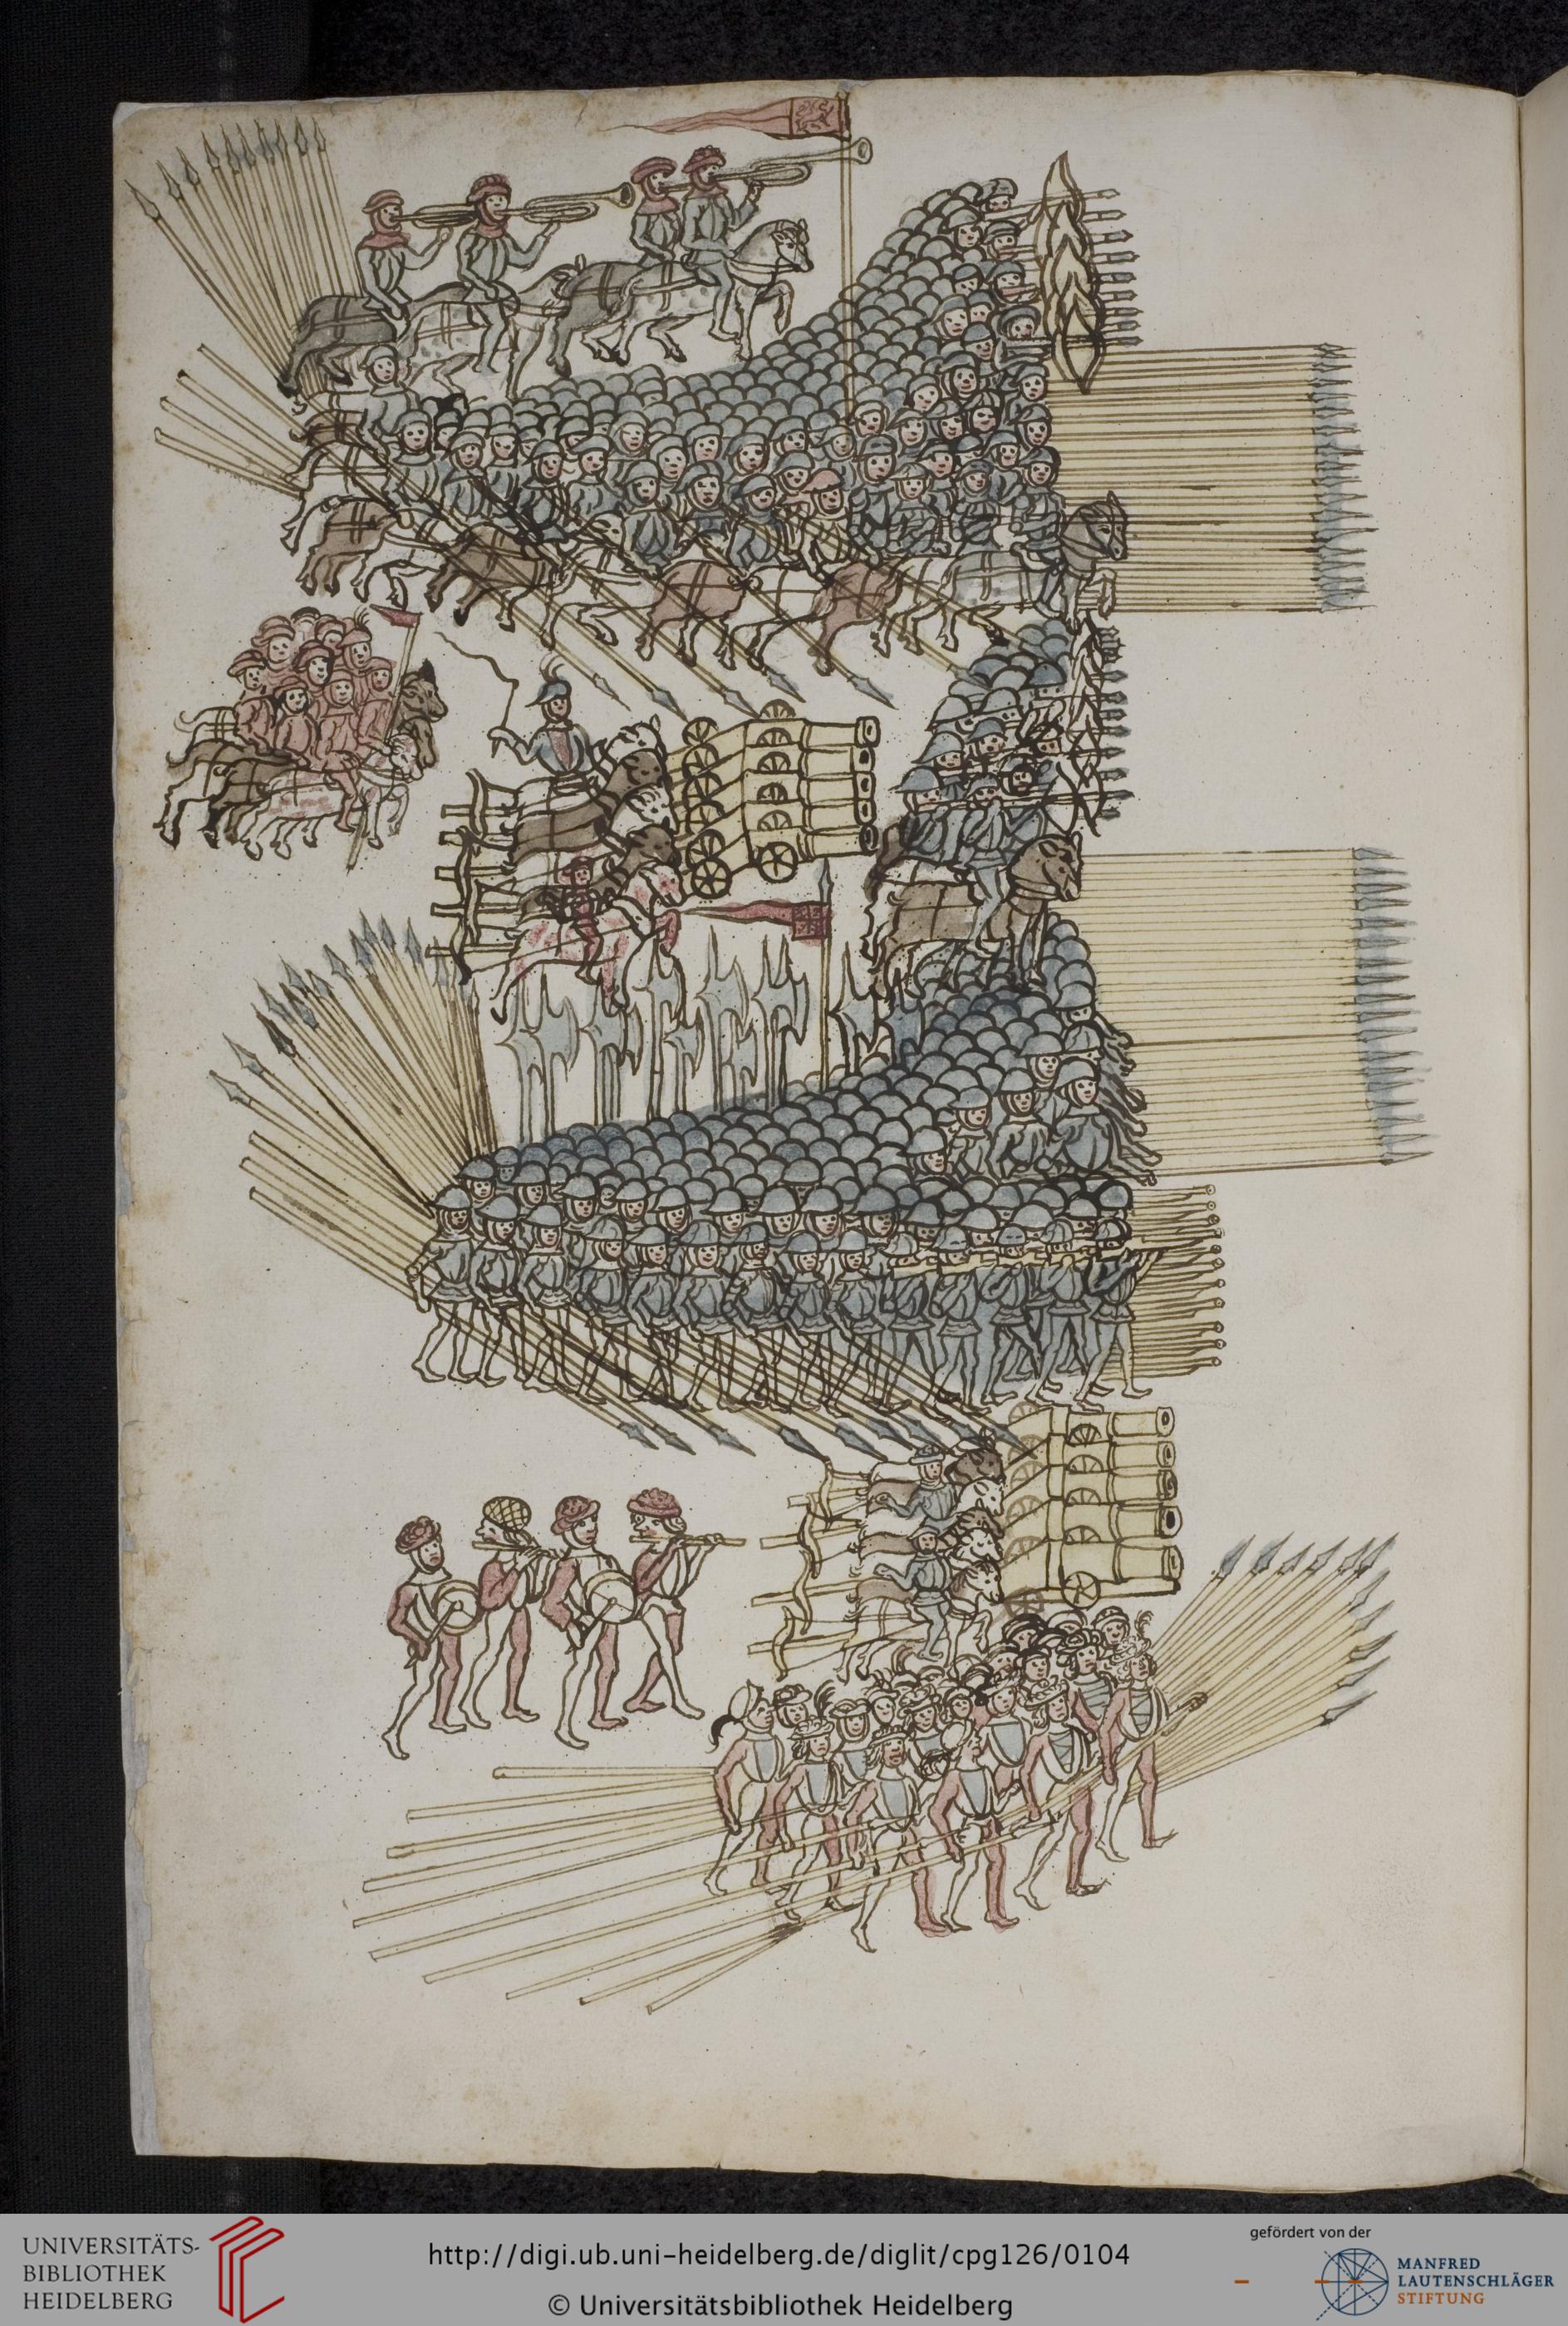 UNIVERSITÄTS-
BIBLIOTHEK
HEIDELBERG
http://digi.ub.uni-heidelberg.de/diglit/cpg126/0104
© Universitätsbibliothek Heidelberg
gefördert von der
MANFRED
LAUTENSCHLÄGER
STIFTUNG